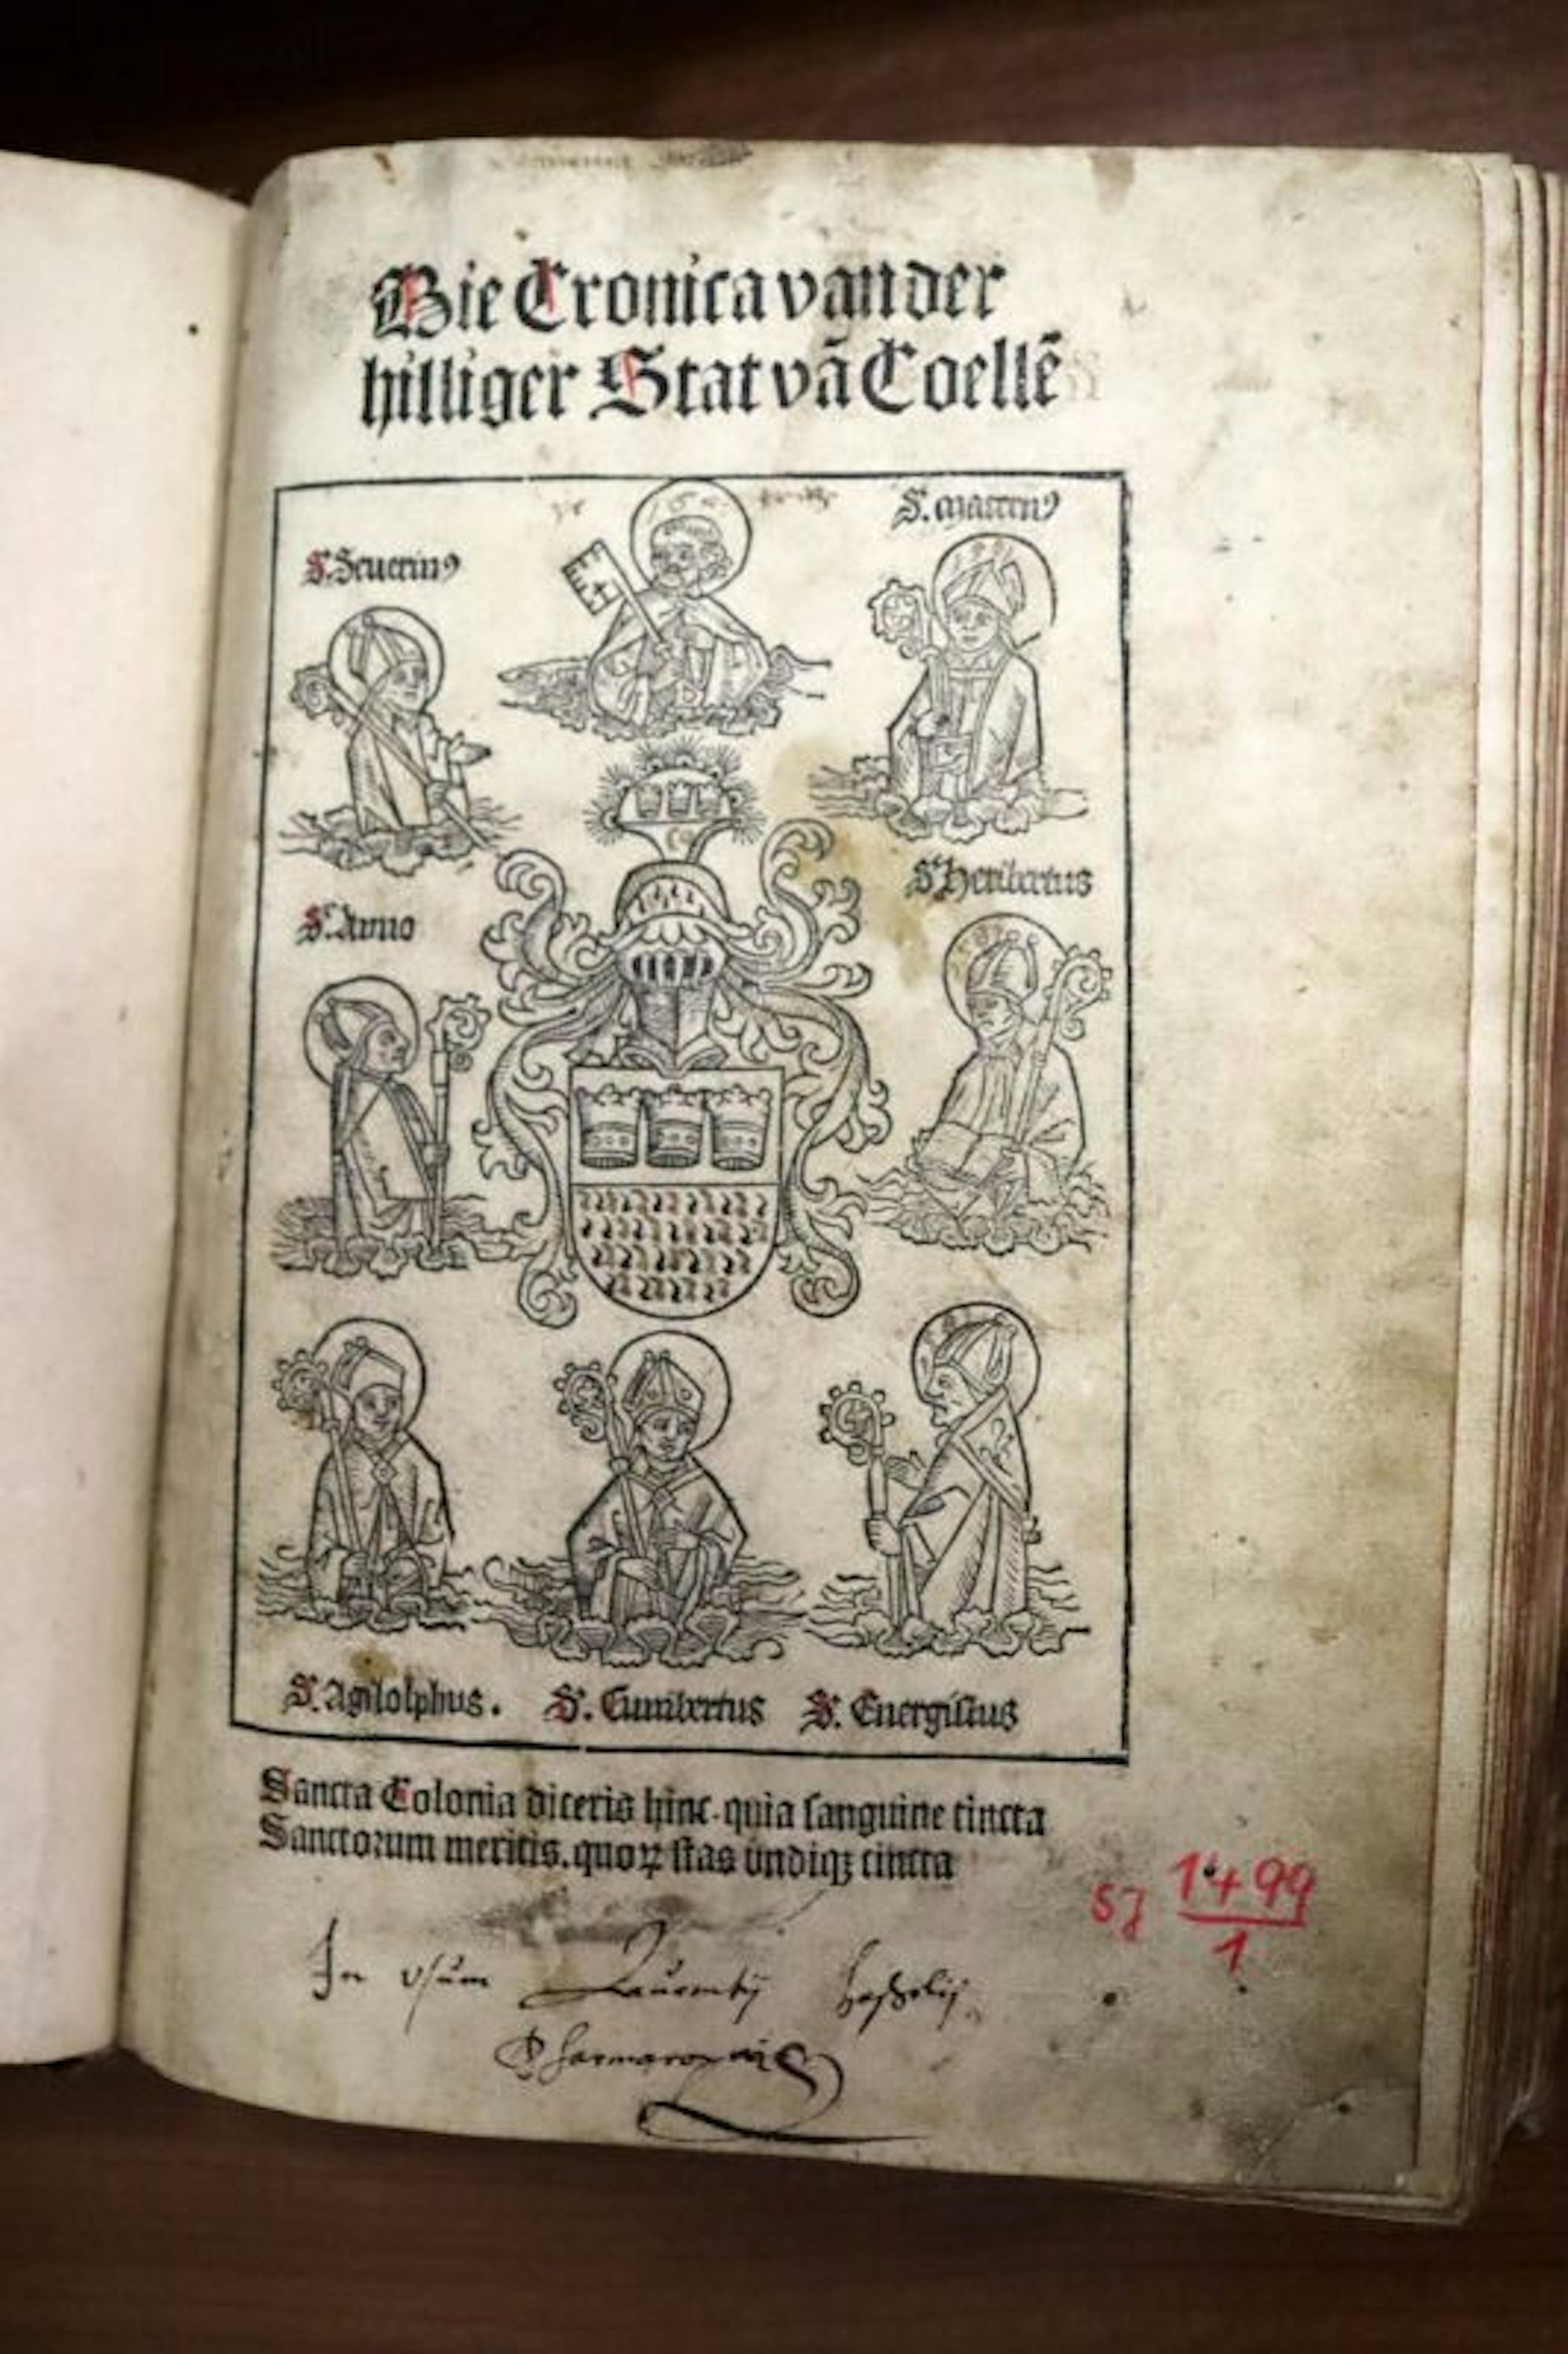 Die Cronica van der
hilliger Stat vā Coellē
S. Maternꝰ
S. Seuerinꝰ
S. Heribertus
S. Anno
S. Agilolphus. S. Cunibertus S. Euergislus
Sancta Colonia diceris hinc. quia sanguine tincta
Sanctorum meritis. quoꝝ stas vndiqꝫ cincta
SJ 1499
1
In vsum Laurentij
Pharmacopæi